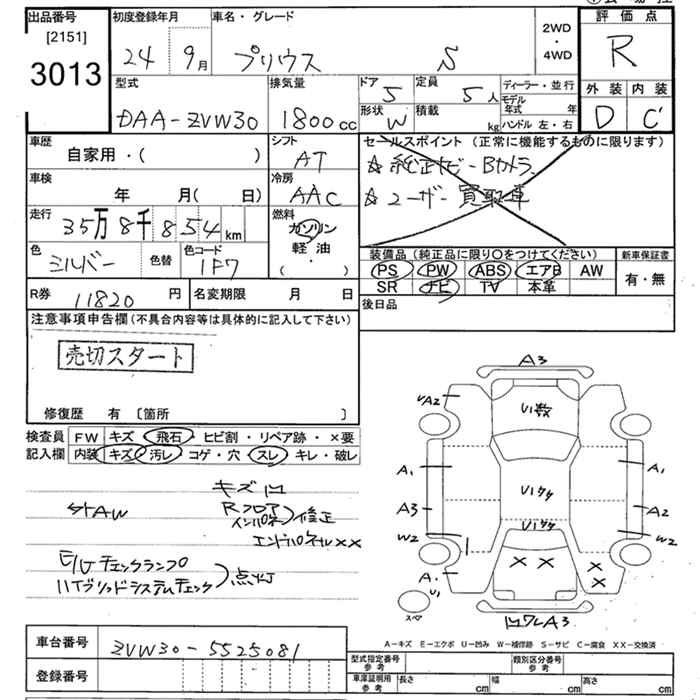 出品番号
[2151]
3013
初度登録年月
24 9月
車名・グレード
プリウス S
2WD
・
4WD
評価点
R
外装 内装
D C
型式
DAA-ZVW30
排気量
1800cc
ドア 5
定員 5人
形状 W
積載 kg
ディーラー・並行
モデル年式 年
ハンドル 左・右
車歴
自家用・( )
シフト
AT
セールスポイント (正常に機能するものに限ります)
☆純正ナビ-Bカメラ
☆ユーザー買取車
車検
年 月( 日)
冷房
AAC
走行
35万8千854km
燃料
ガソリン
軽油
・
( )
色
シルバー
色替
色コード
1F7
装備品 (純正品に限り○をつけてください)
PS PW ABS エアB AW
SR ナビ TV 本革
新車保証書
有・無
R券 11820円
名変期限 月 日
後日品
注意事項申告欄 (不具合内容等は具体的に記入して下さい)
売切スタート
修復歴 有 〔箇所 〕
検査員
記入欄
FW キズ 飛石・ヒビ割・リペア跡・×要
内装 キズ 汚レ コゲ・穴 スレ キレ・破レ
キズ凹
StAW
Rフロア
インパネ
修正
エンドパネルXX
E/Gチェックランプ
ハイブリッドシステムチェック
点灯
A3
UA2
U1数
A1
A1
U1ケケ
A3
A2
W2
U1ケケ
W2
A1
U1
スペア
凹ワレA3
A-キズ E-エクボ U-凹み W-補修跡 S-サビ C-腐食 XX-交換済
車台番号
ZVW30-5525081
登録番号
型式指定番号
参考
類別区分番号
参考
車庫証明用
参考
長さ cm 幅 cm 高さ cm